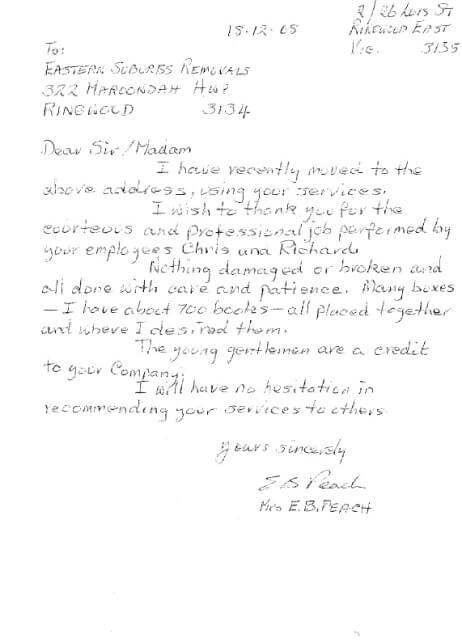 2/26 Lois St
18-12-05
Ringwood East
To:
Vic. 3135
Eastern Suburbs Removals
322 Maroondah Hwy
Ringwood 3134
Dear Sir/Madam
I have recently moved to the
above address, using your services.
I wish to thank you for the
courteous and professional job performed by
your employees Chris and Richard.
Nothing damaged or broken and
all done with care and patience. Many boxes
– I have about 700 books – all placed together
and where I desired them.
The young gentlemen are a credit
to your Company.
I will have no hesitation in
recommending your services to others.
Yours sincerely
E B Peach
Mrs E.B. PEACH